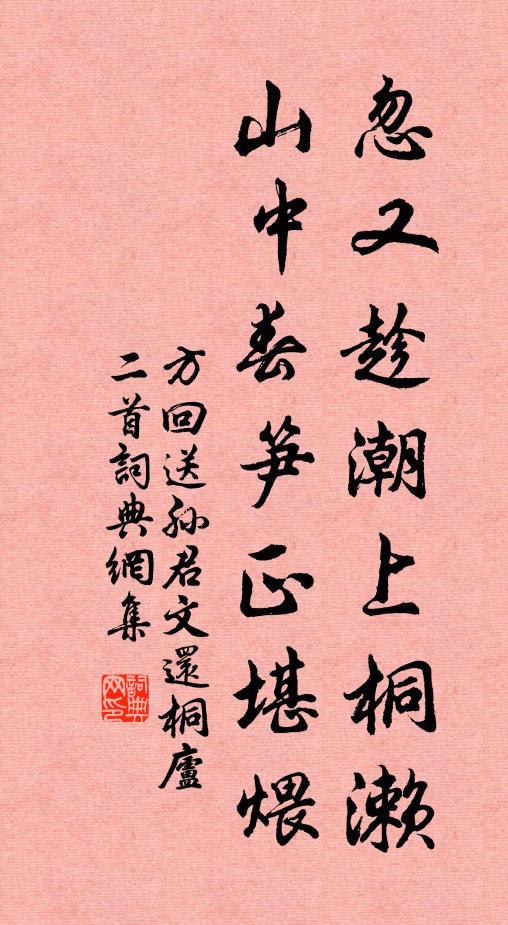 忽又趁潮上桐濑
山中春笋正堪煨
方回送孙君文還桐廬
二首詞典網集
詞典网印